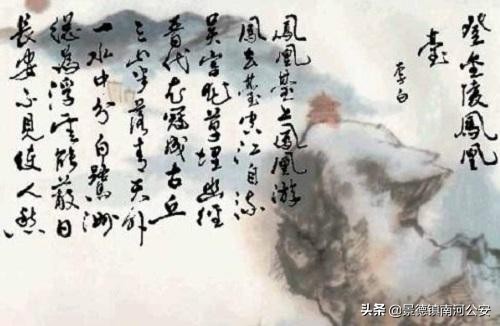 登金陵鳳凰
臺
李白
鳳凰臺上鳳凰游
鳳去臺空江自流
吳宮花草埋幽徑
晉代衣冠成古丘
三山半落青天外
一水中分白鷺洲
總為浮雲能蔽日
長安不見使人愁
头条 @景德镇南河公安